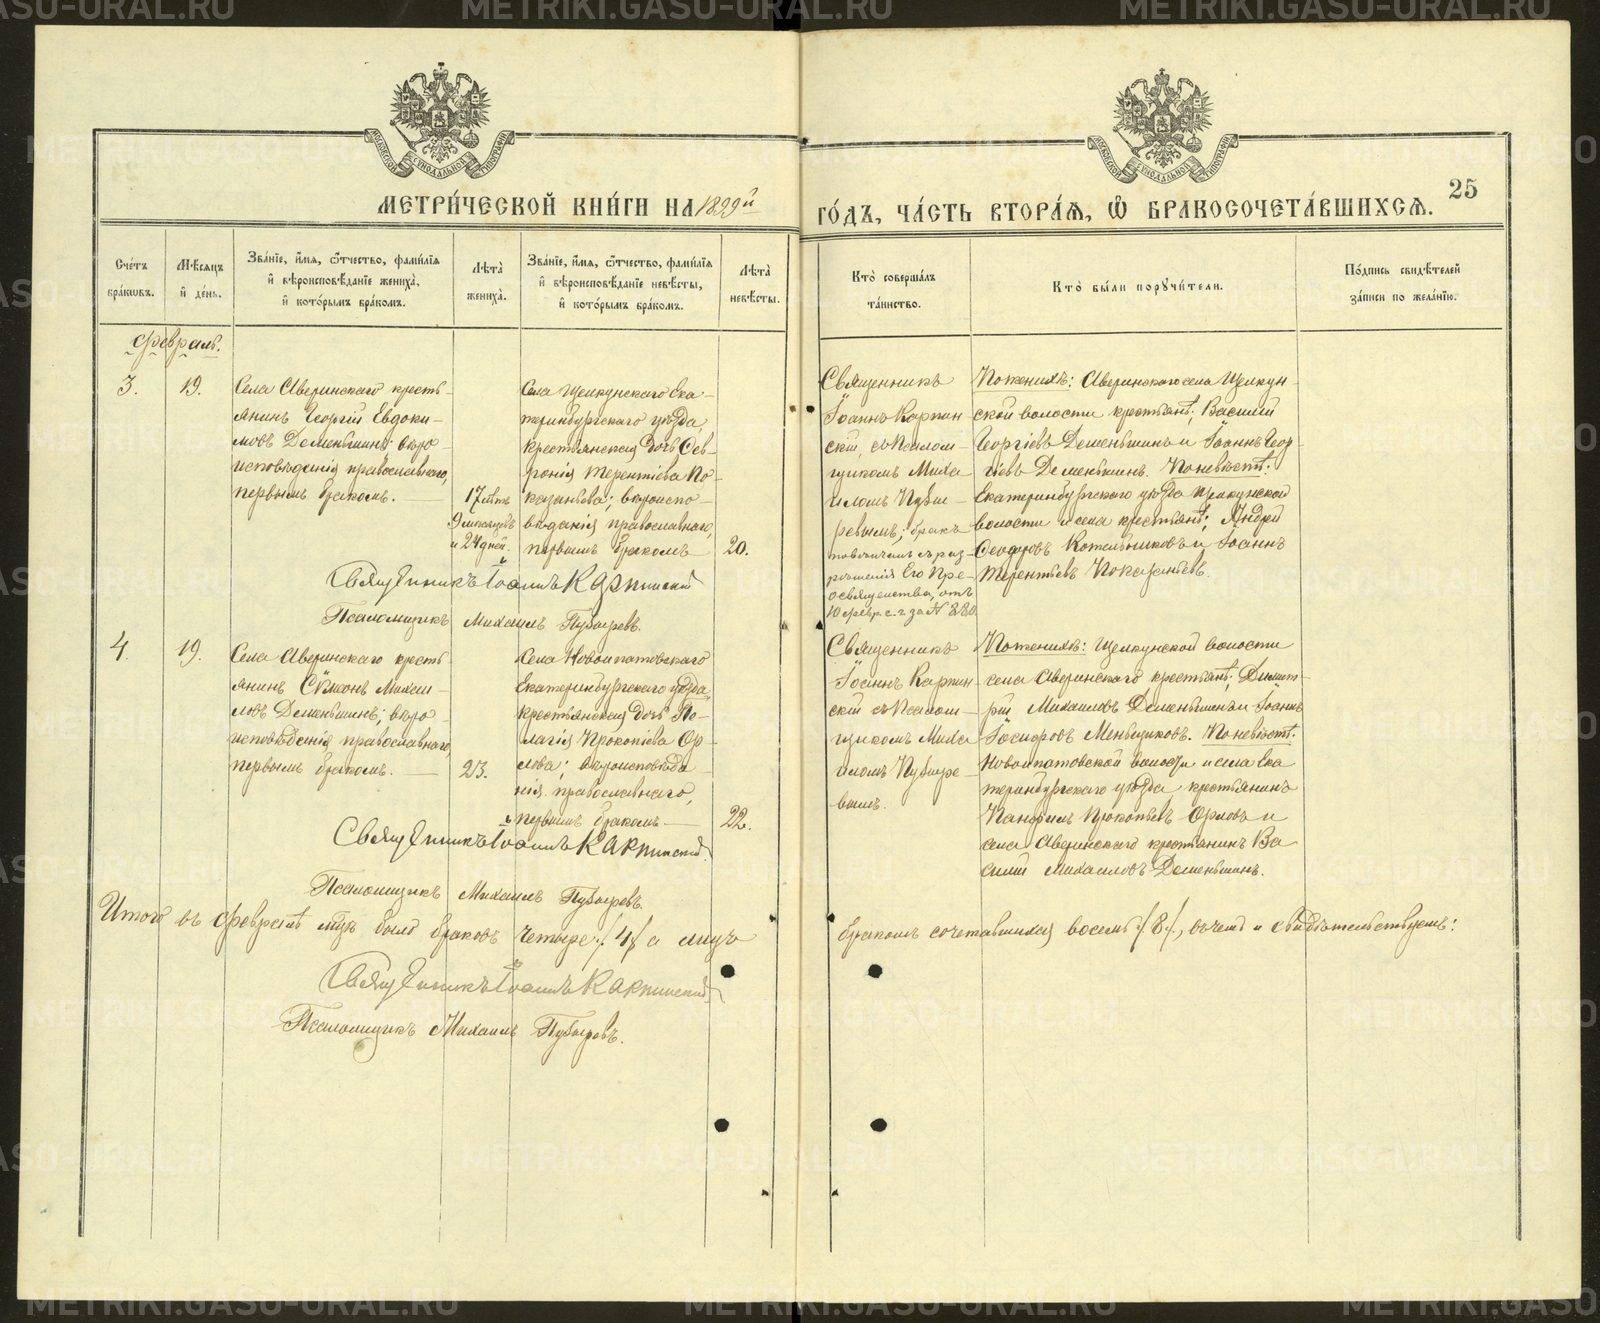 МЕТРИ́ЧЕСКОЙ КНИ́ГИ НА 1899й
ГО́ДЪ, ЧА́СТЬ ВТОРА́Ѧ, Ѽ БРАКОСОЧЕТА́ВШИХСѦ.
25
Сче́тъ бра́кѡвъ.
Мѣ́сѧцъ и҆ де́нь.
Зва́нїе, и҆́мѧ, ѻ҆́тчество, фами́лїѧ
и҆ вѣроисповѣ́данїе жениха̀,
и҆ кото́рымъ бра́комъ.
Лѣ́та жениха̀.
Зва́нїе, и҆́мѧ, ѻ҆́тчество, фами́лїѧ
и҆ вѣроисповѣ́данїе невѣ́сты,
и҆ кото́рымъ бра́комъ.
Лѣ́та невѣ́сты.
Кто̀ соверша́лъ та́инство.
Кто̀ бы́ли пор̾чи́тели.
По́дпись свидѣ́телей за́писи по жела́нїю.
Февраль.
3.
19.
Села Аверинскаго кресть-
янинъ Георгій Евдоки-
мовъ Деменьшинъ; вѣро-
исповѣданія православнаго,
первымъ бракомъ.
17 лѣтъ
9 мѣсяцевъ
и 24 дней.
Села Щелкунскаго Ека-
теринбургскаго уѣзда,
крестьянская дочь Сев-
ронія Терентіева По-
казаньева; вѣроиспо-
вѣданія православнаго,
первымъ бракомъ
20.
Священникъ
Іоаннъ Карпин
скій, съ Псалом-
щикомъ Миха
иломъ Пузы-
ревымъ; бракъ
повѣнчанъ съ раз-
рѣшенія Его Пре-
освященства, отъ
10 февр. с. г. за № 880.
По женихѣ: Аверинскаго села Щелкун-
ской волости крестьянѣ; Василій
Георгіевъ Деменьшинъ и Іоаннъ Геор-
гіевъ Деменьшинъ. По невѣстѣ:
Екатеринбургскаго уѣзда Щелкунской
волости и села крестьянѣ; Андрей
Феодоровъ Котельниковъ и Іоаннъ
Терентьевъ Показаньевъ.
Священникъ Іоаннъ Карпинскій
Псаломщикъ Михаилъ Пузыревъ.
4.
19.
Села Аверинскаго кресть
янинъ Сѵмеонъ Михаи-
ловъ Деменьшинъ; вѣро-
исповѣданія православнаго,
первымъ бракомъ.
23.
Села Новоипатовскаго
Екатеринбургскаго уѣзда,
крестьянская дочь Пе-
лагія Прокопіева Ор-
лова; вѣроисповѣда
нія православнаго,
первымъ бракомъ
22.
Священникъ
Іоаннъ Карпин
скій съ Псалом-
щикомъ Миха
иломъ Пузыре-
вымъ.
По женихѣ: Щелкунской волости
села Аверинскаго крестьянѣ; Димит-
рій Михаиловъ Деменьшинъ и Іоаннъ
Іосифовъ Меньщиковъ. По невѣстѣ:
Новоипатовской волости и села Ека
теринбургскаго уѣзда крестьянинъ
Панфилъ Прокопьевъ Орловъ и
села Аверинскаго крестьянинъ Ва
силій Михаиловъ Деменьшинъ.
Священникъ Іоаннъ Карпинскій
Псаломщикъ Михаилъ Пузыревъ.
Итого въ февралѣ мцѣ было браковъ четыре /4/ а лицъ
бракомъ сочетавшихся восемь /8/, въ чемъ и свидѣтельствуемъ:
Священникъ Іоаннъ Карпинскій
Псаломщикъ Михаилъ Пузыревъ.
METRIKI.GASU-URAL.RU